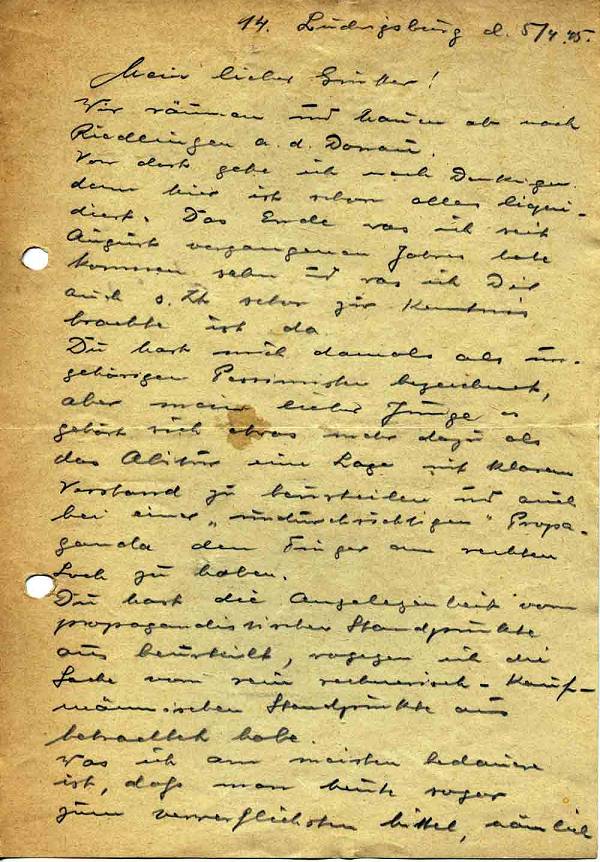 14. Ludwigsburg d. 5/4 45.
Mein lieber Günther!
Wir räumen und hauen ab nach
Riedlingen a. d. Donau.
Von dort gehe ich nach Denkingen
denn hier ist schon alles liqui-
diert. Das Ende was ich seit
August vergangenen Jahres habe
kommen sehn und was ich Dir
auch s. Zt. schon zur Kenntnis
brachte ist da.
Du hast mich damals als un-
gehörigen Pessimisten bezeichnet,
aber mein lieber Junge es
gehört sich etwas mehr dazu als
das Abitur eine Lage mit klarem
Verstand zu beurteilen und auch
bei einer "undurchsichtigen" Propa-
ganda den Finger am rechten
Loch zu haben.
Du hast die Angelegenheit vom
propagandistischen Standpunkte
aus beurteilt, wogegen ich die
Sache vom rein rechnerisch-kauf-
männischen Standpunkte aus
betrachtet habe.
Was ich am meisten bedauere
ist, dass man heute sogar
zum verwerflichsten Mittel, nämlich